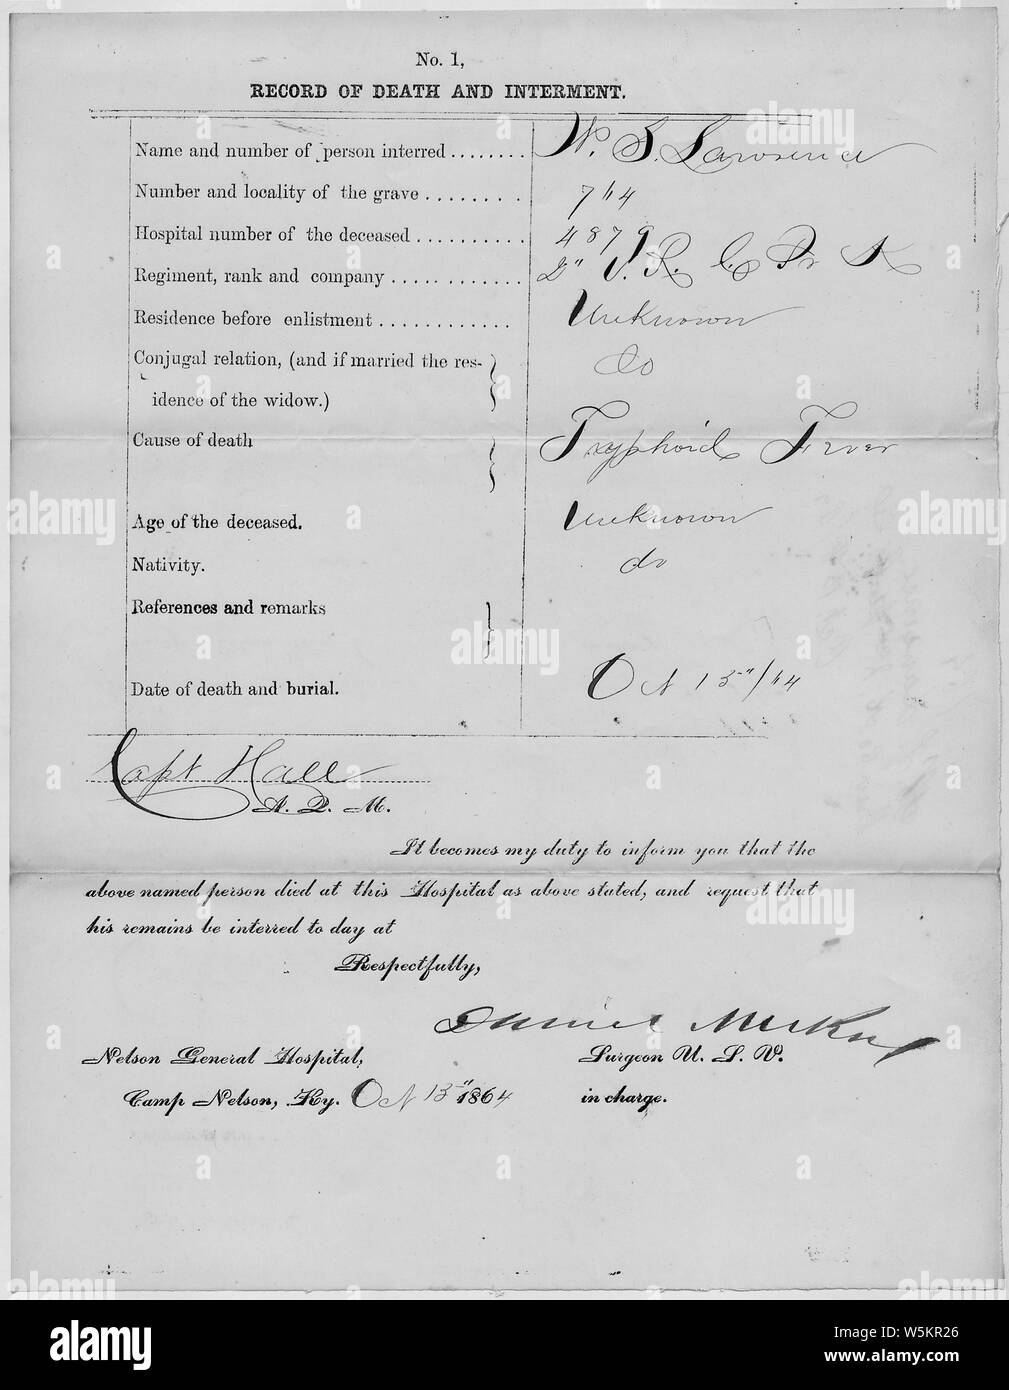 No. 1,
RECORD OF DEATH AND INTERMENT.
Name and number of person interred ........ W. S. Lawrence
Number and locality of the grave ........ 764
Hospital number of the deceased .......... 4879
Regiment, rank and company ............ 2" V. R. C. Pr K
Residence before enlistment ............ Unknown
Conjugal relation, (and if married the res-
idence of the widow.) do
Cause of death Typhoid Fever
Age of the deceased. Unknown
Nativity. do
References and remarks
Date of death and burial. Oct 15"/64
Capt Hall
A. Q. M.
It becomes my duty to inform you that the
above named person died at this Hospital as above stated, and request that
his remains be interred to day at
Respectfully,
Daniel
Nelson General Hospital, Surgeon U. S. V.
Camp Nelson, Ky. Oct 15" 1864 in charge.
alamy
alamy
Image ID: W5KR26
www.alamy.com